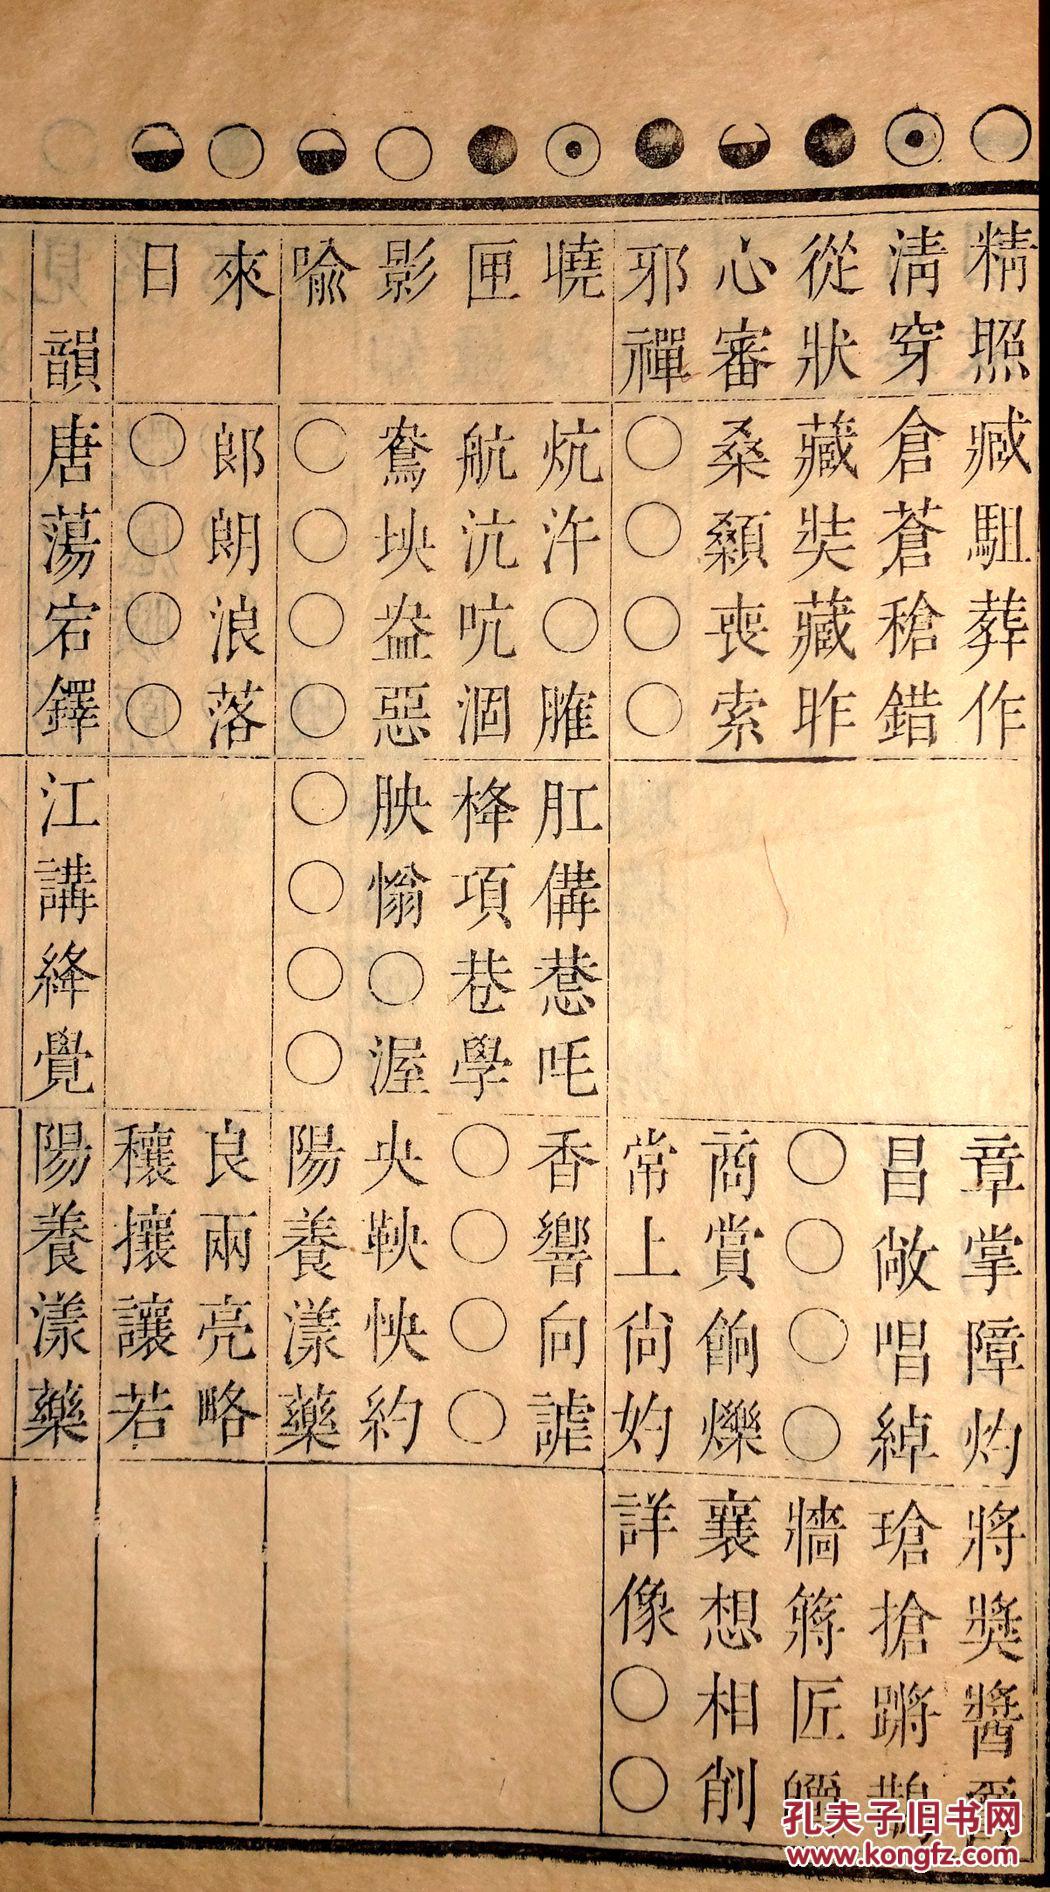 精照臧駔葬作章掌障灼將奬醬爵
淸穿倉蒼稂錯昌敞唱綽瑲搶蹡鵲
從狀藏奘藏昨○○○○牆蔣匠皭
心審桑顙喪索商賞餉爍襄想相削
邪禪○○○○常上尙妁詳像○○
曉炕汻○臛肛備戇吒香響向謔
匣航沆吭涸栙項巷學○○○○
影鴦坱盎惡胦慃○渥央鞅怏約
喩○○○○○○○○陽養漾藥
來郞朗浪落良兩亮略
日○○○○穰攘讓若
韻唐蕩宕鐸江講絳覺陽養漾藥
孔夫子旧书网
www.kongfz.com